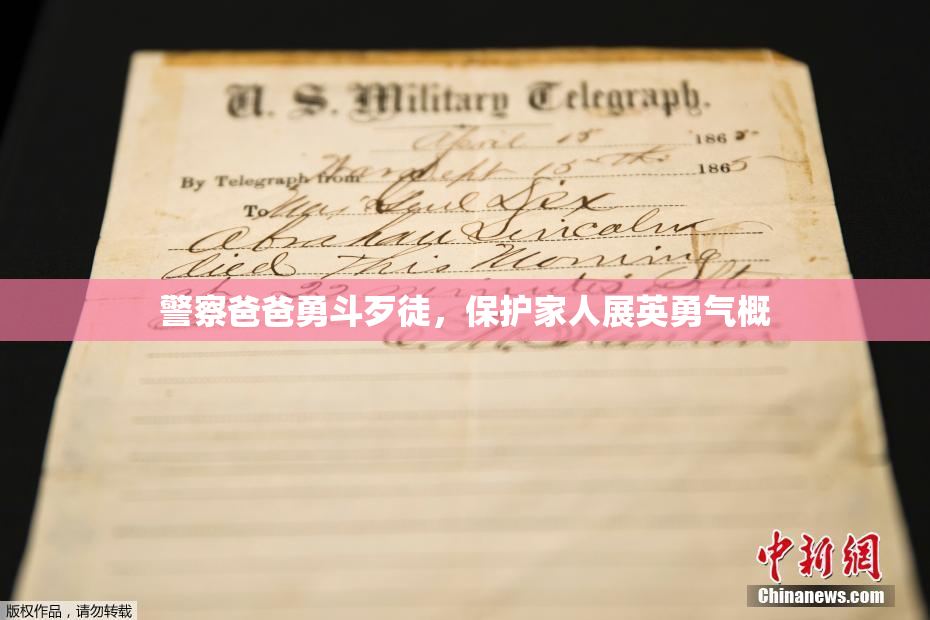 U. S. Military Telegraph.
April 15 1865
By Telegraph from War Dept 15th 1865
To Maj Genl Dix
Abraham Lincoln
died this Morning
at 22 minutes after
警察爸爸勇斗歹徒，保护家人展英勇气概
E. M. Stanton
中新网
Chinanews.com
版权作品，请勿转载